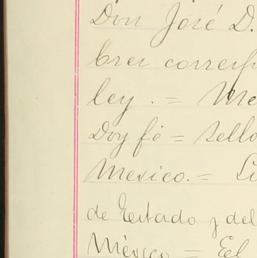 Don José D.
bres corresp
ley. = Me
Doy fé = Sello
Mexico. = Li
de Estado y del
México = El